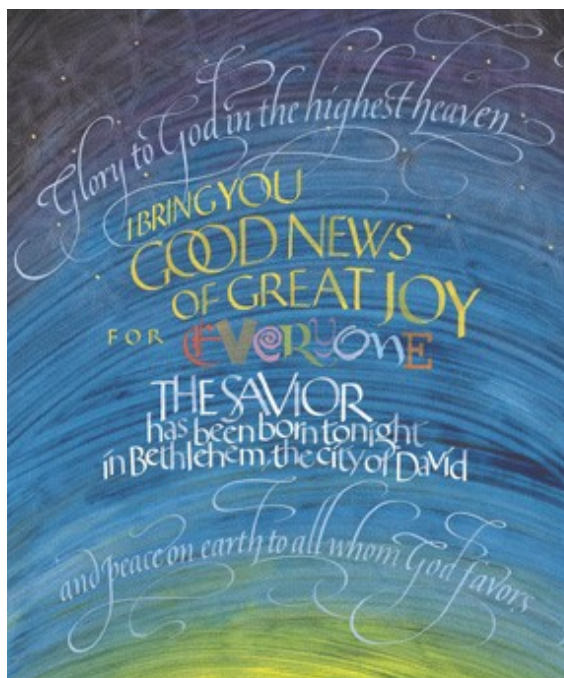 Glory to God in the highest heaven
I BRING YOU
GOOD NEWS
OF GREAT JOY
FOR EVERYONE
THE SAVIOR
has been born tonight
in Bethlehem the city of David
and peace on earth to all whom God favors